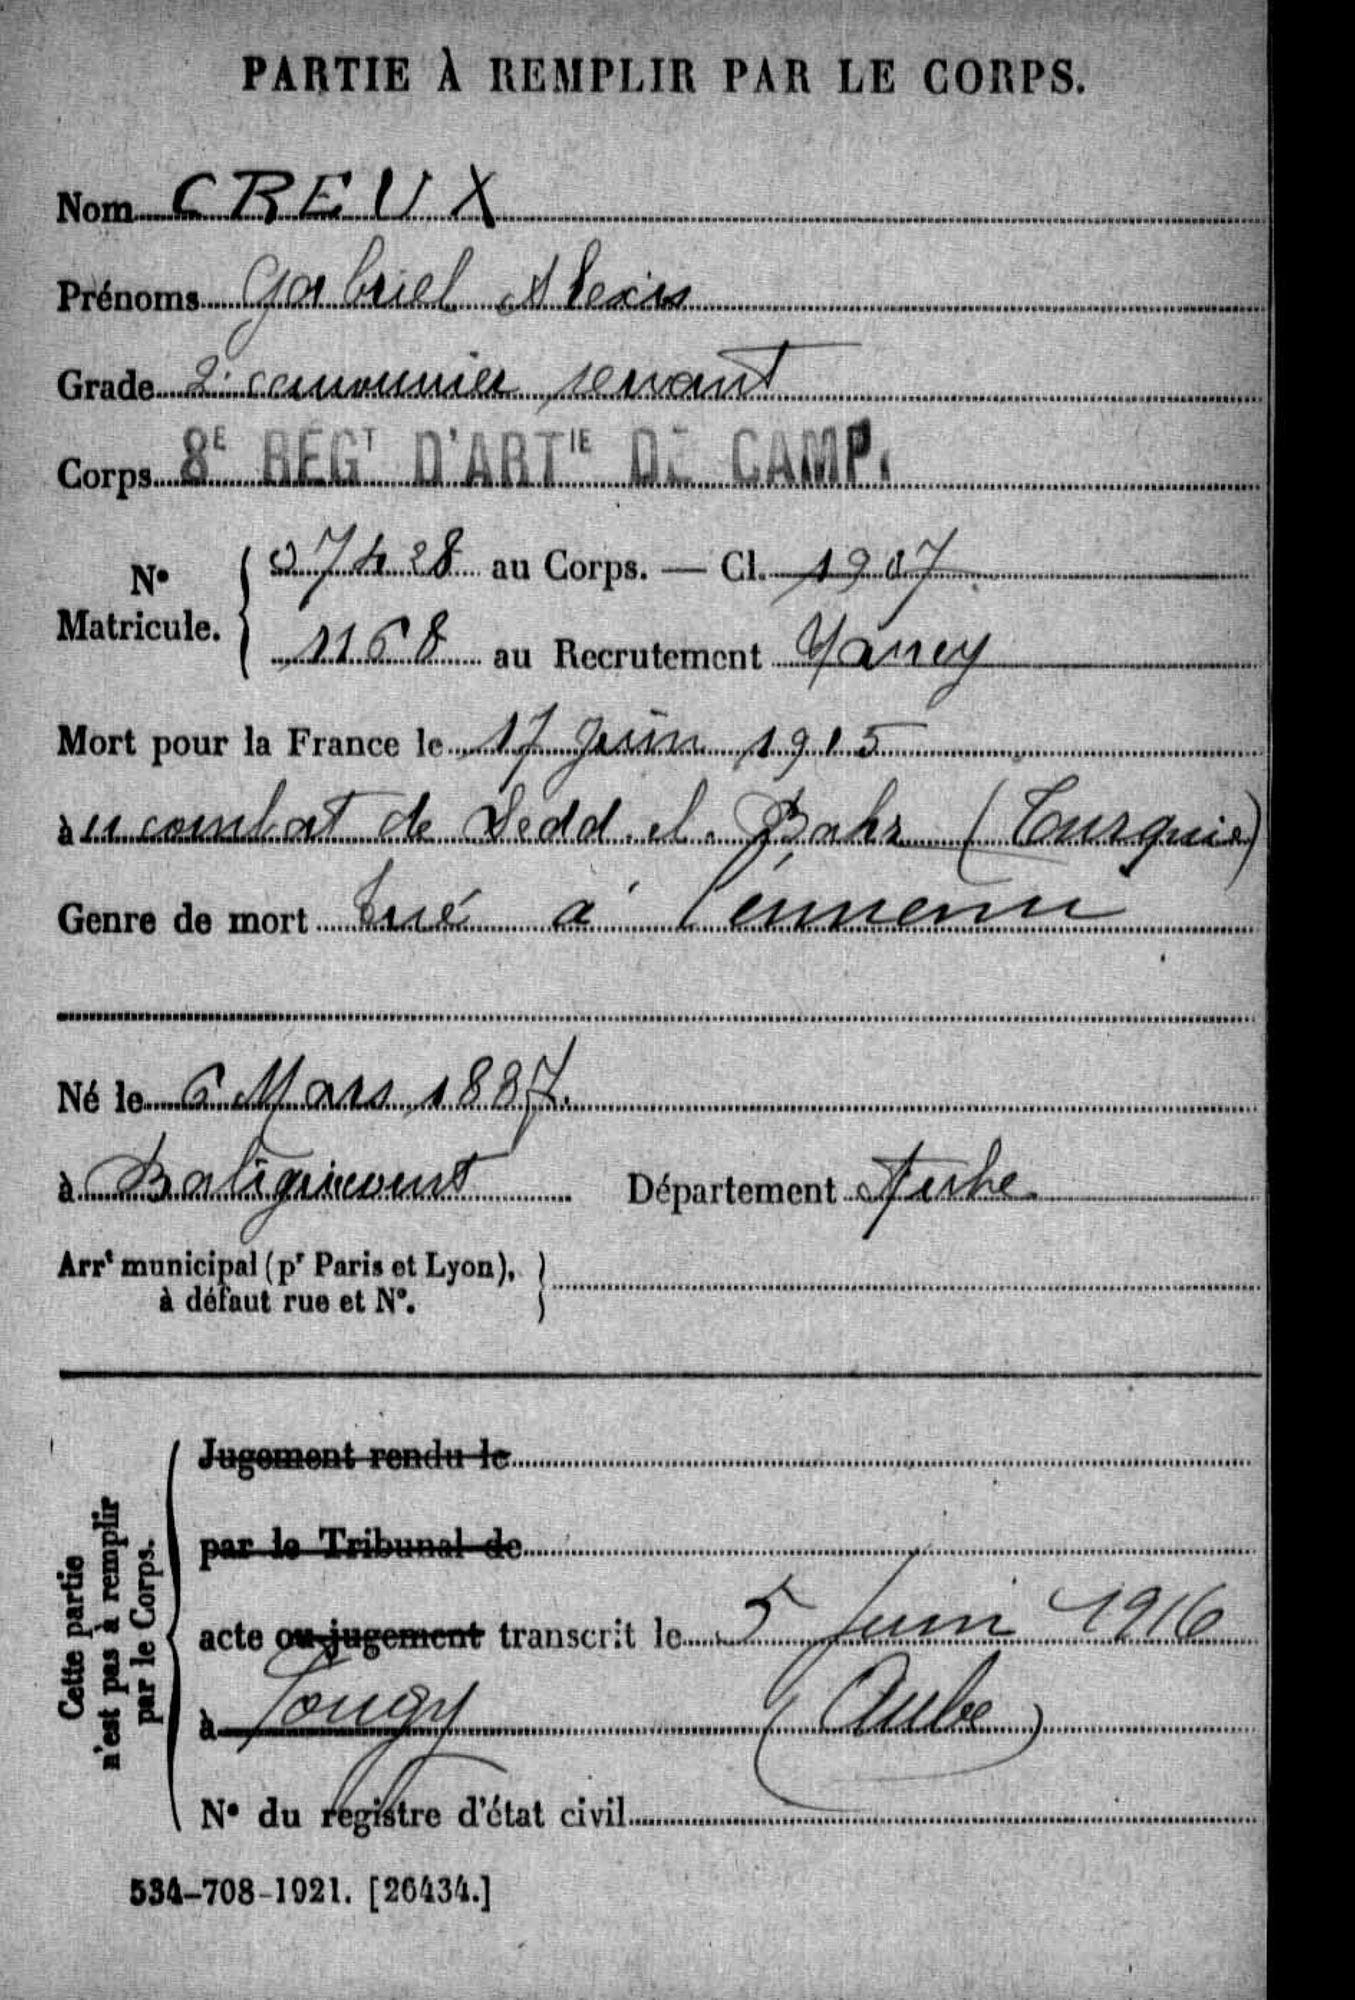 PARTIE À REMPLIR PAR LE CORPS.
Nom CREUX
Prénoms Gabriel Alexis
Grade 2e canonnier servant
Corps 8E RÉGT D'ARTIE DE CAMP.
No Matricule. 07428 au Corps. — Cl. 1907
1168 au Recrutement Nancy
Mort pour la France le 17 juin 1915
au combat de Sedd. el. Bahr (Turquie)
Genre de mort tué à l'ennemi
Né le 6 Mars 1887.
à Balignicourt Département Aube
Arrt municipal (pr Paris et Lyon),
à défaut rue et No.
Cette partie
n'est pas à remplir
par le Corps.
Jugement rendu le
par le Tribunal de
acte ou jugement transcrit le 5 Juin 1916
à Pougy (Aube)
No du registre d'état civil
534-708-1921. [26434.]